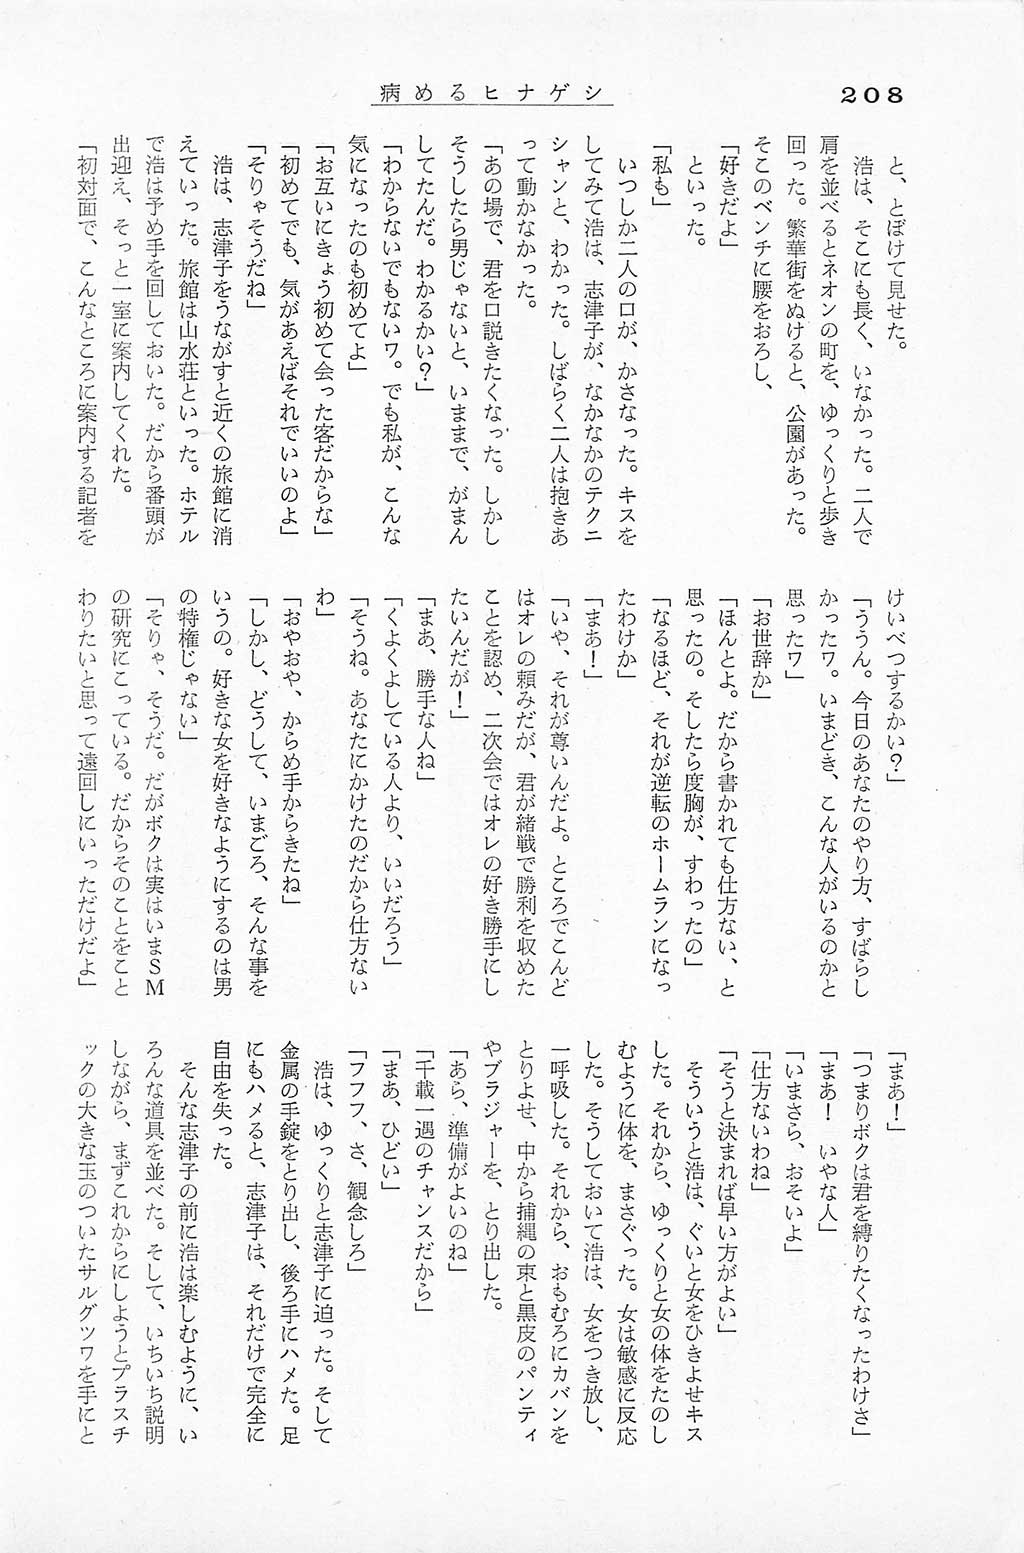 208
病めるヒナゲシ
と、とぼけて見せた。
浩は、そこにも長く、いなかった。二人で
肩を並べるとネオンの町を、ゆっくりと歩き
回った。繁華街をぬけると、公園があった。
そこのベンチに腰をおろし、
「好きだよ」
といった。
「私も」
いつしか二人の口が、かさなった。キスを
してみて浩は、志津子が、なかなかのテクニ
シャンと、わかった。しばらく二人は抱きあ
って動かなかった。
「あの場で、君を口説きたくなった。しかし
そうしたら男じゃないと、いままで、がまん
してたんだ。わかるかい？」
「わからないでもないワ。でも私が、こんな
気になったのも初めてよ」
「お互いにきょう初めて会った客だからな」
「初めてでも、気があえばそれでいいのよ」
「そりゃそうだね」
浩は、志津子をうながすと近くの旅館に消
えていった。旅館は山水荘といった。ホテル
で浩は予め手を回しておいた。だから番頭が
出迎え、そっと一室に案内してくれた。
「初対面で、こんなところに案内する記者を
けいべつするかい？」
「ううん。今日のあなたのやり方、すばらし
かったワ。いまどき、こんな人がいるのかと
思ったワ」
「お世辞か」
「ほんとよ。だから書かれても仕方ない、と
思ったの。そしたら度胸が、すわったの」
「なるほど、それが逆転のホームランになっ
たわけか」
「まあ！」
「いや、それが尊いんだよ。ところでこんど
はオレの頼みだが、君が緒戦で勝利を収めた
ことを認め、二次会ではオレの好き勝手にし
たいんだが！」
「まあ、勝手な人ね」
「くよくよしている人より、いいだろう」
「そうね。あなたにかけたのだから仕方ない
わ」
「おやおや、からめ手からきたね」
「しかし、どうして、いまごろ、そんな事を
いうの。好きな女を好きなようにするのは男
の特権じゃない」
「そりゃ、そうだ。だがボクは実はいまSM
の研究にこっている。だからそのことをこと
わりたいと思って遠回しにいっただけだよ」
「まあ！」
「つまりボクは君を縛りたくなったわけさ」
「まあ！　いやな人」
「いまさら、おそいよ」
「仕方ないわね」
「そうと決まれば早い方がよい」
そういうと浩は、ぐいと女をひきよせキス
した。それから、ゆっくりと女の体をたのし
むように体を、まさぐった。女は敏感に反応
した。そうしておいて浩は、女をつき放し、
一呼吸した。それから、おもむろにカバンを
とりよせ、中から捕縄の束と黒皮のパンティ
やブラジャーを、とり出した。
「あら、準備がよいのね」
「千載一遇のチャンスだから」
「まあ、ひどい」
「フフフ、さ、観念しろ」
浩は、ゆっくりと志津子に迫った。そして
金属の手錠をとり出し、後ろ手にハメた。足
にもハメると、志津子は、それだけで完全に
自由を失った。
そんな志津子の前に浩は楽しむように、い
ろんな道具を並べた。そして、いちいち説明
しながら、まずこれからにしようとプラスチ
ックの大きな玉のついたサルグツワを手にと